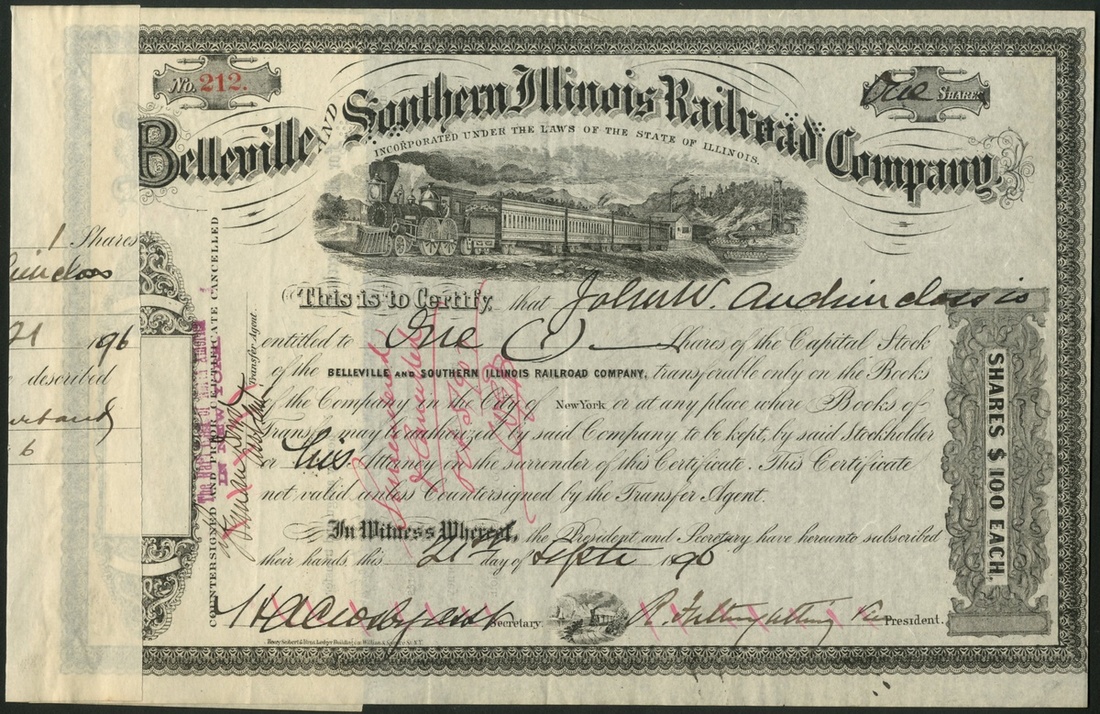 No. 212.
One SHARE
Belleville AND Southern Illinois Railroad Company.
INCORPORATED UNDER THE LAWS OF THE STATE OF ILLINOIS.
1 Shares
21 1896
described
This is to Certify, that John W. is
entitled to One (1) Shares of the Capital Stock
of the BELLEVILLE AND SOUTHERN ILLINOIS RAILROAD COMPANY, transferable only on the Books
of the Company in the City of New York or at any place where Books of
Transfer may be authorized, by said Company to be kept, by said Stockholder
or his Attorney on the surrender of this Certificate. This Certificate
not valid unless Countersigned by the Transfer Agent.
In Witness Whereof, the President and Secretary have hereunto subscribed
their hands, this 21st day of Septr 1896
Secretary.
President.
COUNTERSIGNED AND PRIOR CERTIFICATE CANCELLED
IN NEW YORK
Transfer Agent.
Surrendered
& Cancelled
SHARES $100 EACH.